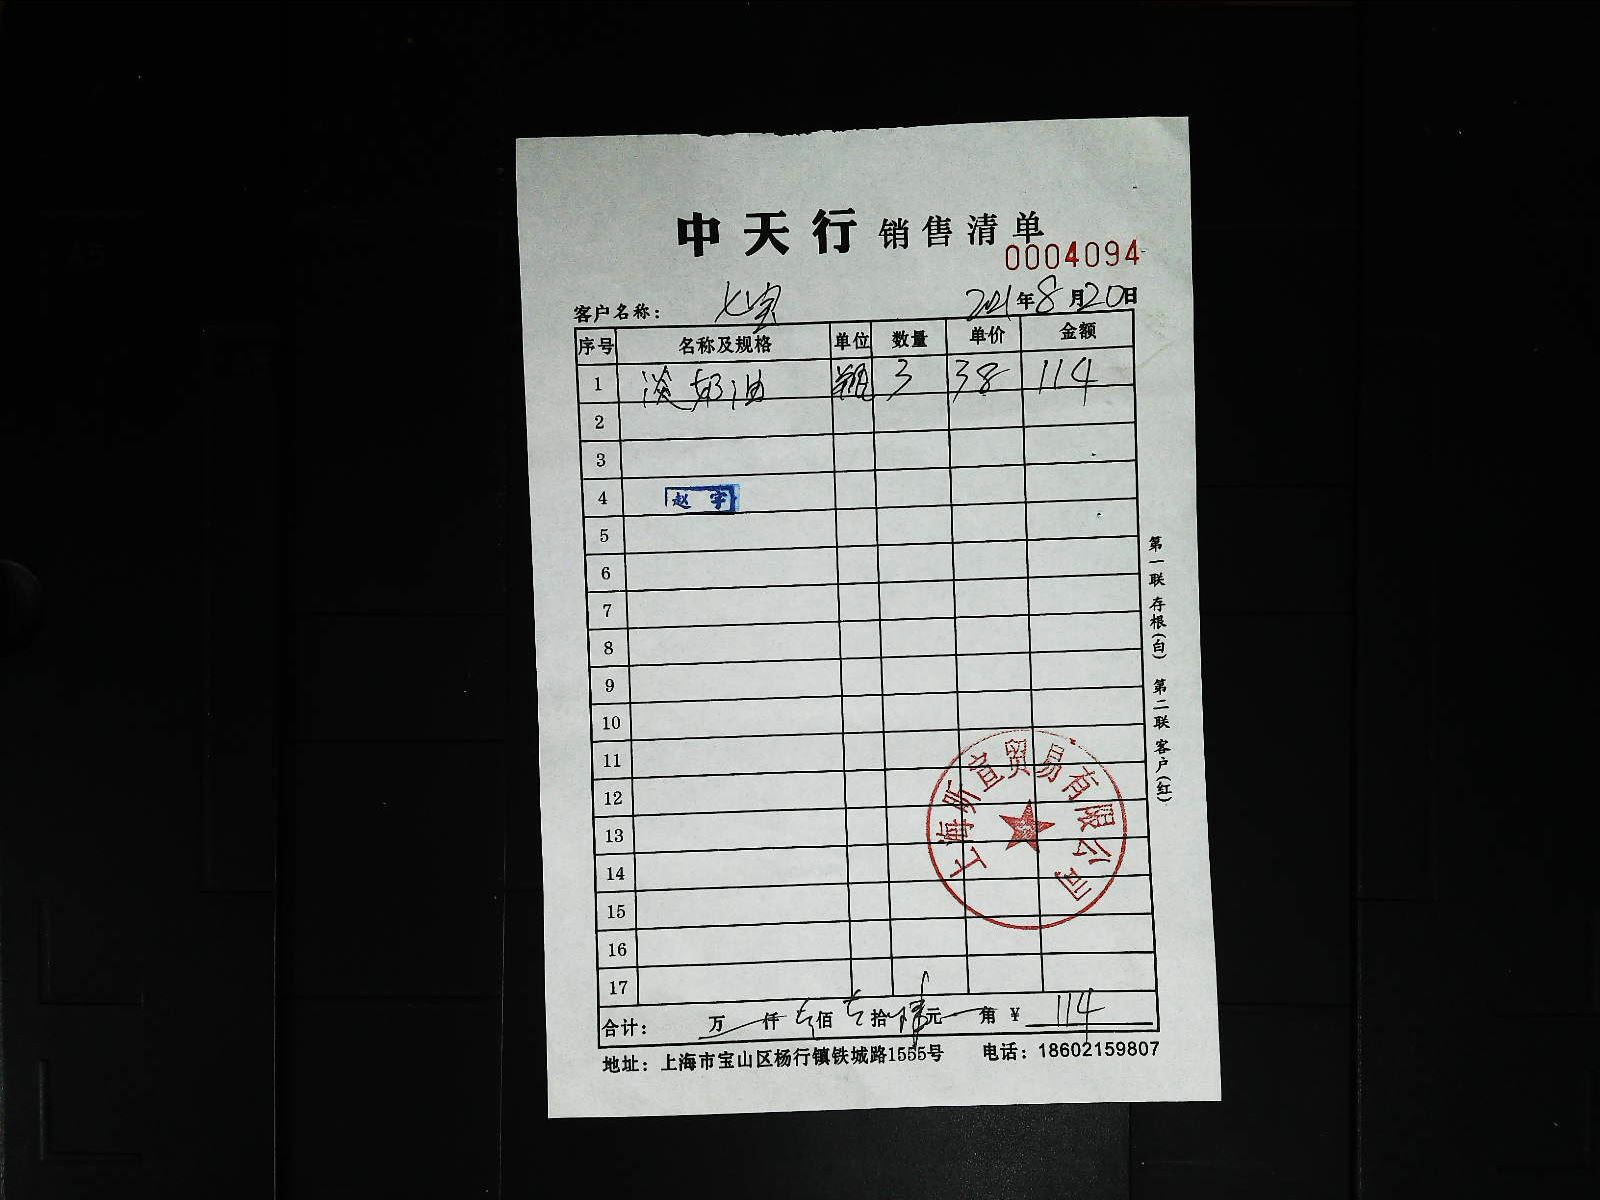 中天行 销售清单
0004094
客户名称： 七宝 2021年8月20日
序号 名称及规格 单位 数量 单价 金额
1 淡奶油 瓶 3 38 114
2
3
4 赵宇
5
6
7
8
9
10
11
12
13
14
15
16
17
上海昕宣贸易有限公司
合计： 万 仟 壹佰 壹拾 肆元 角 ¥ 114
地址：上海市宝山区杨行镇铁城路1555号 电话：18602159807
第一联 存根(白) 第二联 客户(红)